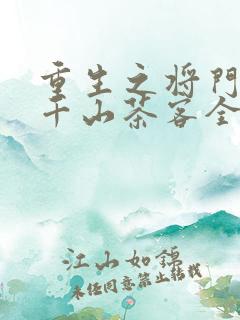 重生之将门
千山茶客全
江山如锦
未经同意禁止转载